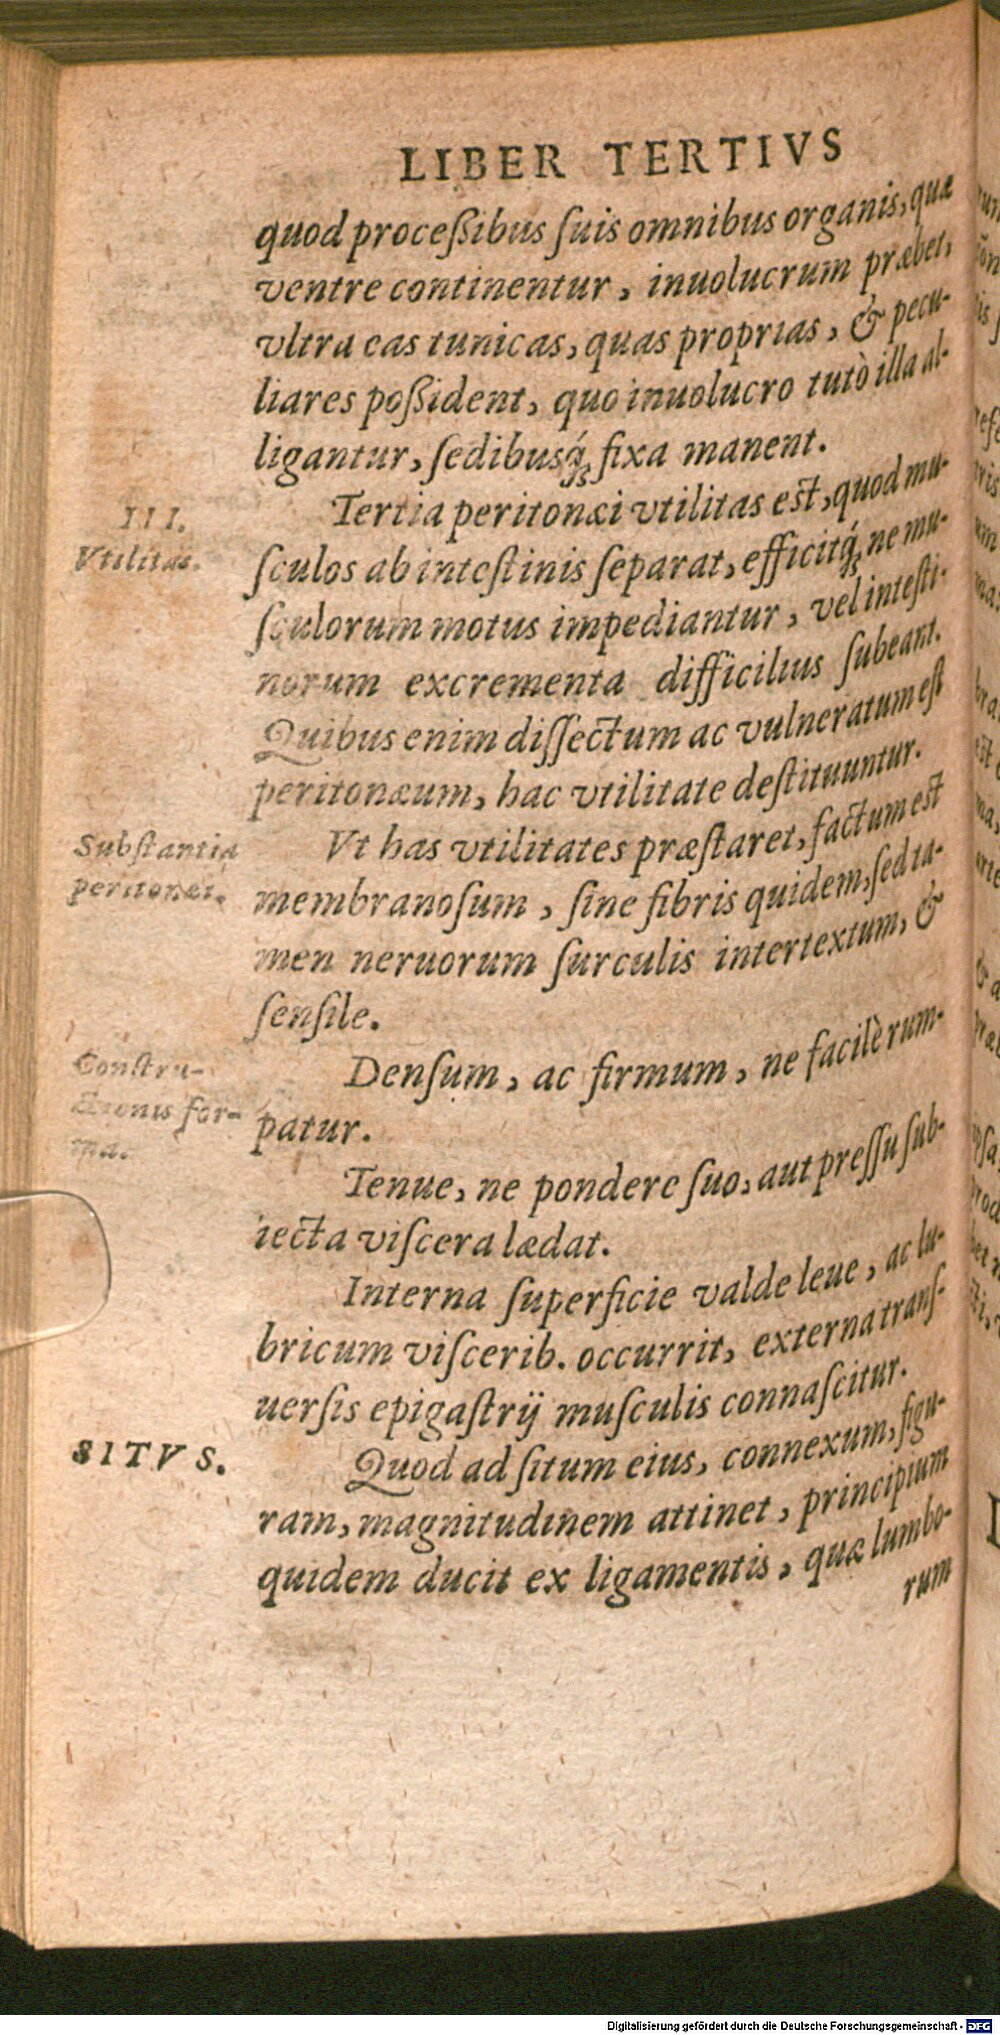 LIBER TERTIVS
quod proceßibus ſuis omnibus organis, quæ
ventre continentur, inuolucrum præbet,
vltra eas tunicas, quas proprias, & pecu-
liares poßident, quo inuolucro tutò illa al-
ligantur, ſedibusq́; fixa manent.
III.
Vtilitas.
Tertia peritonæi vtilitas est, quod mu-
ſculos ab inteſtinis ſeparat, efficitq́; ne mu-
ſculorum motus impediantur, vel inteſti-
norum excrementa difficilius ſubeant.
Quibus enim diſſectum ac vulneratum eſt
peritonæum, hac vtilitate deſtituuntur.
Subſtantia
peritonæi.
Vt has vtilitates præſtaret, factum est
membranoſum, ſine fibris quidem, ſed ta-
men neruorum ſurculis intertextum, &
ſenſile.
Conſtru-
ctionis for-
ma.
Denſum, ac firmum, ne facilè rum-
patur.
Tenue, ne pondere ſuo, aut preſſu ſub-
iecta viſcera lædat.
Interna ſuperficie valde leue, ac lu-
bricum viſcerib. occurrit, externa tranſ-
uerſis epigaſtrij muſculis connaſcitur.
SITVS.
Quod ad ſitum eius, connexum, figu-
ram, magnitudinem attinet, principium
quidem ducit ex ligamentis, quæ lumbo-
rum
Digitalisierung gefördert durch die Deutsche Forschungsgemeinschaft - DFG